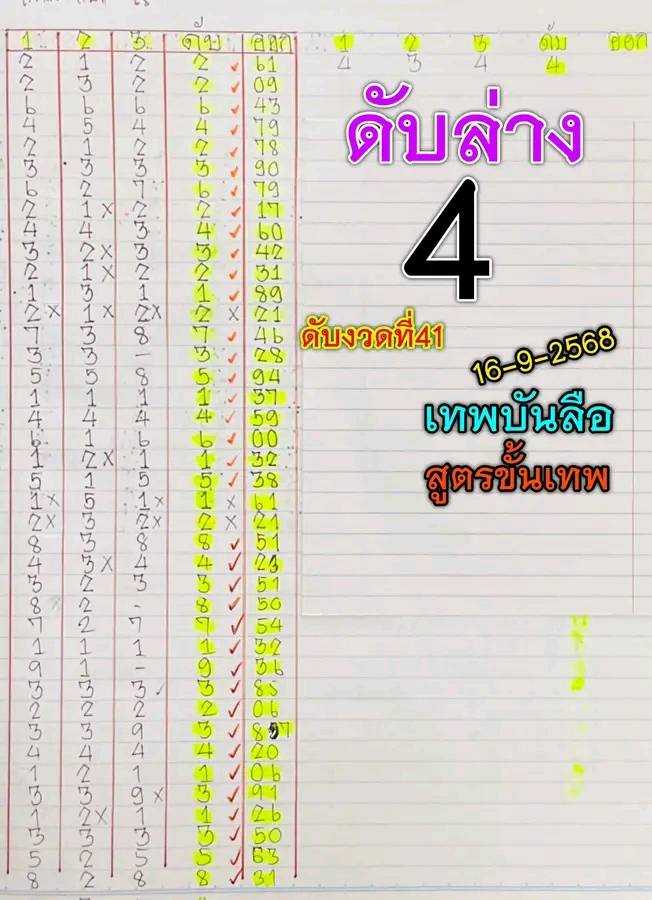 1 2 3 ดับ ออก 1 2 3 ดับ ออก
2 1 2 2 ✓ 61 4 3 4 4
2 3 2 2 ✓ 09
6 6 6 6 ✓ 43
4 5 4 4 ✓ 79
2 1 2 2 ✓ 78
3 3 3 3 ✓ 90
6 2 7 6 ✓ 79
2 1 x 2 2 ✓ 17
4 4 3 4 ✓ 60
3 2 x 3 3 ✓ 42
2 1 x 2 2 ✓ 31
1 3 1 1 ✓ 89
2 x 1 x 2 x 2 x 21
7 3 8 7 ✓ 46
3 3 - 3 ✓ 28
5 5 8 5 ✓ 94
1 1 1 1 ✓ 37
4 4 4 4 ✓ 59
6 1 6 6 ✓ 00
1 2 x 1 1 ✓ 32
5 1 5 5 ✓ 38
1 x 5 1 x 1 x 61
2 x 3 2 x 2 x 21
8 3 8 8 ✓ 51
4 3 x 4 4 ✓ 23
3 2 3 3 ✓ 51
8 2 - 8 ✓ 50
7 2 7 7 ✓ 54
1 1 1 1 ✓ 32
9 1 - 9 ✓ 36
3 3 3 ✓ 3 ✓ 85
2 2 2 2 ✓ 06
3 3 9 3 ✓
4 4 4 4 ✓ 20
1 2 1 1 ✓ 06
3 3 9 x 3 ✓ 91
1 2 x 1 1 ✓ 26
3 3 3 3 ✓ 50
5 2 5 5 ✓ 63
8 2 8 8 ✓ 31
ดับล่าง
4
ดับงวดที่41
16-9-2568
เทพบันลือ
สูตรขั้นเทพ